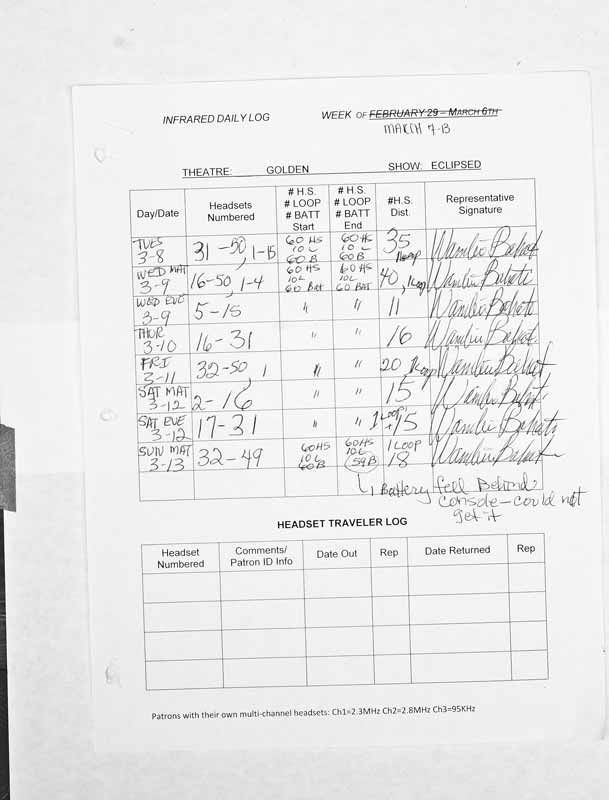 INFRARED DAILY LOG WEEK OF FEBRUARY 29 – MARCH 6TH
MARCH 7-13
THEATRE: GOLDEN SHOW: ECLIPSED
Day/Date Headsets Numbered # H.S. # LOOP # BATT Start # H.S. # LOOP # BATT End #H.S. Dist. Representative Signature
TUES 3-8 31-50, 1-15 60 HS 10 L 60 B 60 HS 10 L 60 B 35 1 loop
WED MAT 3-9 16-50, 1-4 60 HS 10L 60 BAT 60 HS 10L 60 BAT 40, 1 loop
WED EVE 3-9 5-15 " " 11
THUR 3-10 16-31 " " 16
FRI 3-11 32-50, 1 " " 20, 1 loop
SAT MAT 3-12 2-16 " " 15
SAT EVE 3-12 17-31 " " 1 LOOP + 15
SUN MAT 3-13 32-49 60HS 10L 60B 60HS 10L 59B 1 LOOP 18
1 Battery fell Behind
console – could not
get it
HEADSET TRAVELER LOG
Headset Numbered Comments/ Patron ID Info Date Out Rep Date Returned Rep
Patrons with their own multi-channel headsets: Ch1=2.3MHz Ch2=2.8MHz Ch3=95KHz